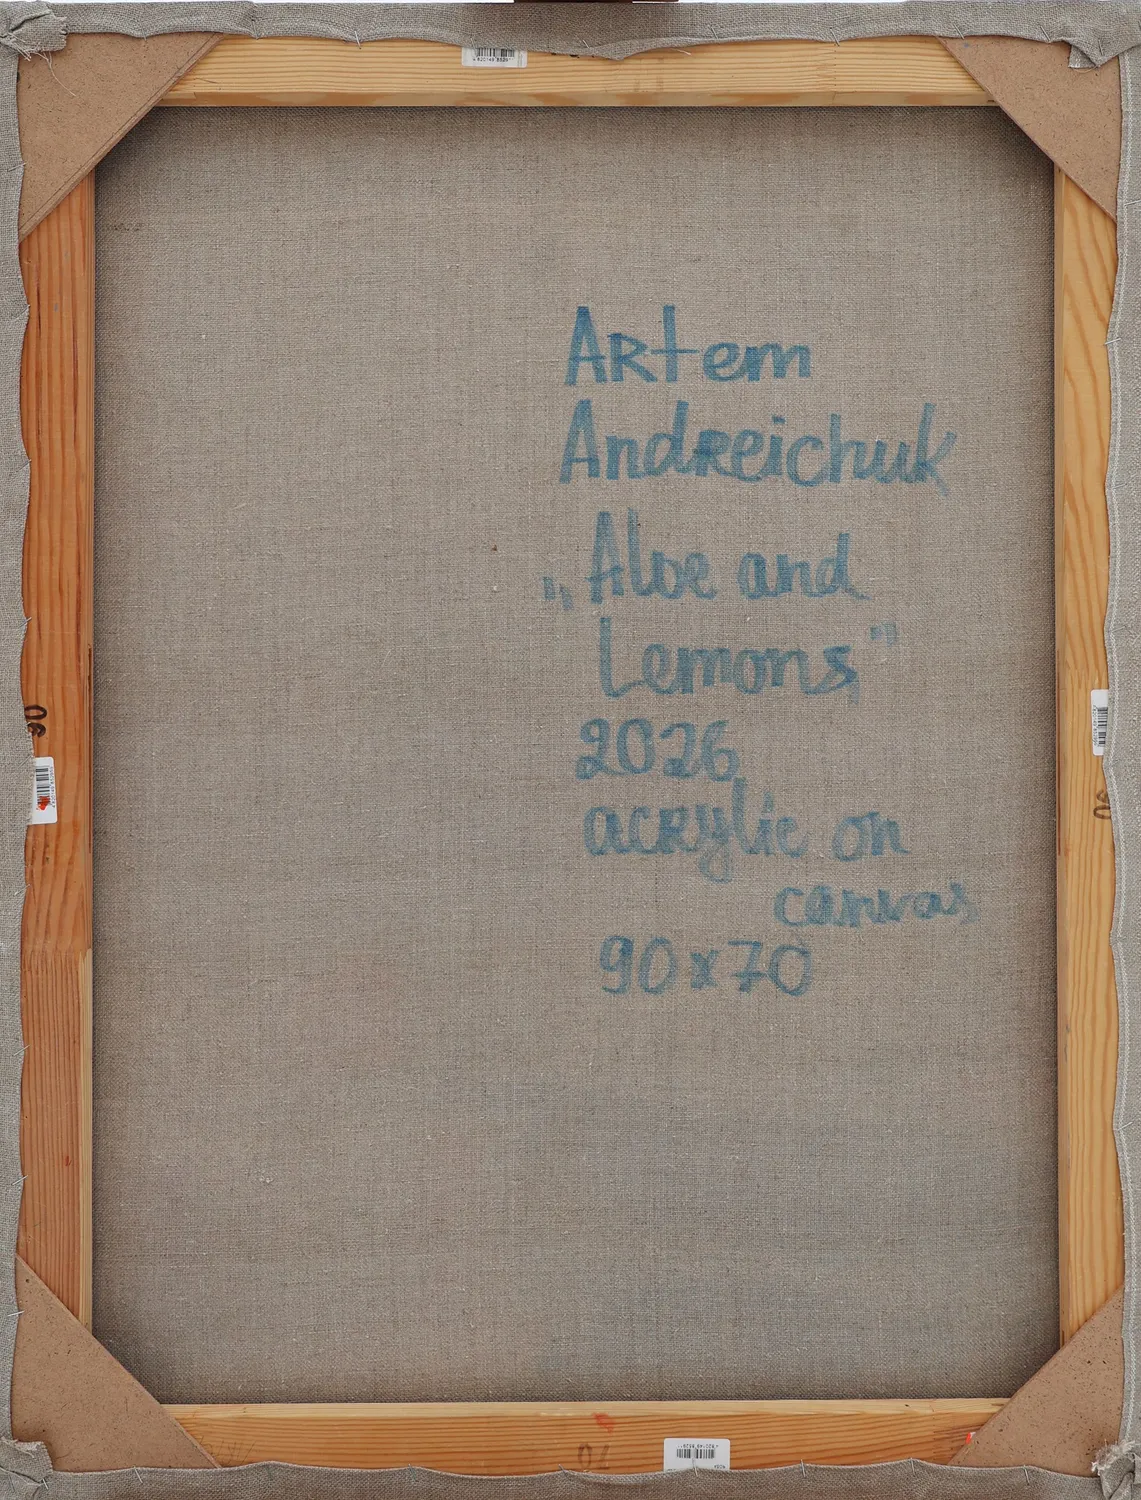 ARtem
Andreichuk
„Aloe and
Lemons”
2026
acrylic on
canvas
90x70
90
90
70